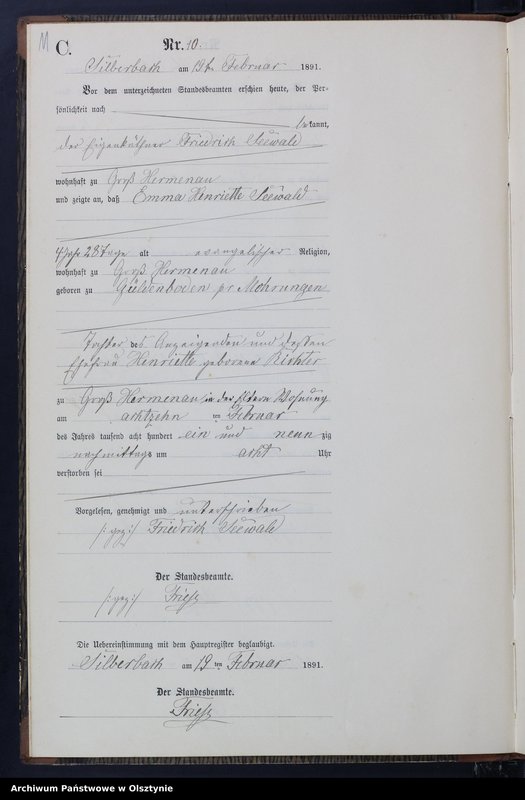 M
C.
Nr. 10.
Silberbach am 19ten Februar 1891.
Vor dem unterzeichneten Standesbeamten erschien heute, der Per-
sönlichkeit nach
bekannt,
der Eigenkäthner Friedrich Seewald
wohnhaft zu Groß Hermenau
und zeigte an, daß Emma Henriette Seewald
4 Jahr 28 Tage alt evangelischer Religion,
wohnhaft zu Groß Hermenau
geboren zu Güldenboden pr Mohrungen
Tochter des Anzeigenden und dessen
Ehefrau Henriette geborene Richter
zu Groß Hermenau in der Wohnung
am achtzehn ten Februar
des Jahres tausend acht hundert ein und neun zig
nachmittags um acht Uhr
verstorben sei
Vorgelesen, genehmigt und unterschrieben
/: gez :/ Friedrich Seewald
Der Standesbeamte.
/: gez :/ Friese
Die Uebereinstimmung mit dem Hauptregister beglaubigt.
Silberbach am 19 ten Februar 1891.
Der Standesbeamte.
Friese
Archiwum Państwowe w Olsztynie